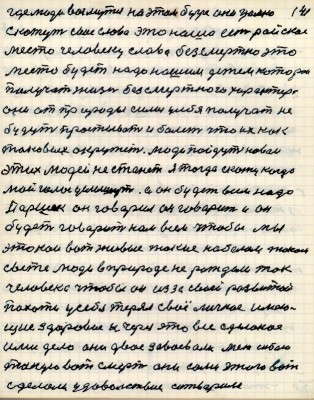 где люди возьмут на этом бугре они право 141
скажут свое слово это наше есть райское
место человеку слава бессмертно это
место будет надо нашим детям которые
получат жизнь бессмертного характера
они от природы силы у себя получат не
будут простывать и болеть что их как
таковых окружит. люди пойдут новые
этих людей не станет я тогда скажу когда
мой голос услышут. а он будет всем надо
Паршек он говорил он говорит и он
будет говорить нам всем чтобы мы
это как вот живые такие на белом такой
свете люди в природе не рождали так
человека чтобы он из за своей развитой
похоти у себя терял своё личное имею-
щие здоровье и через это все сделаное
ими дело они двое завоевали меж собою
такую вот смерть они сами этого вот
сделали удовольствие сотворили